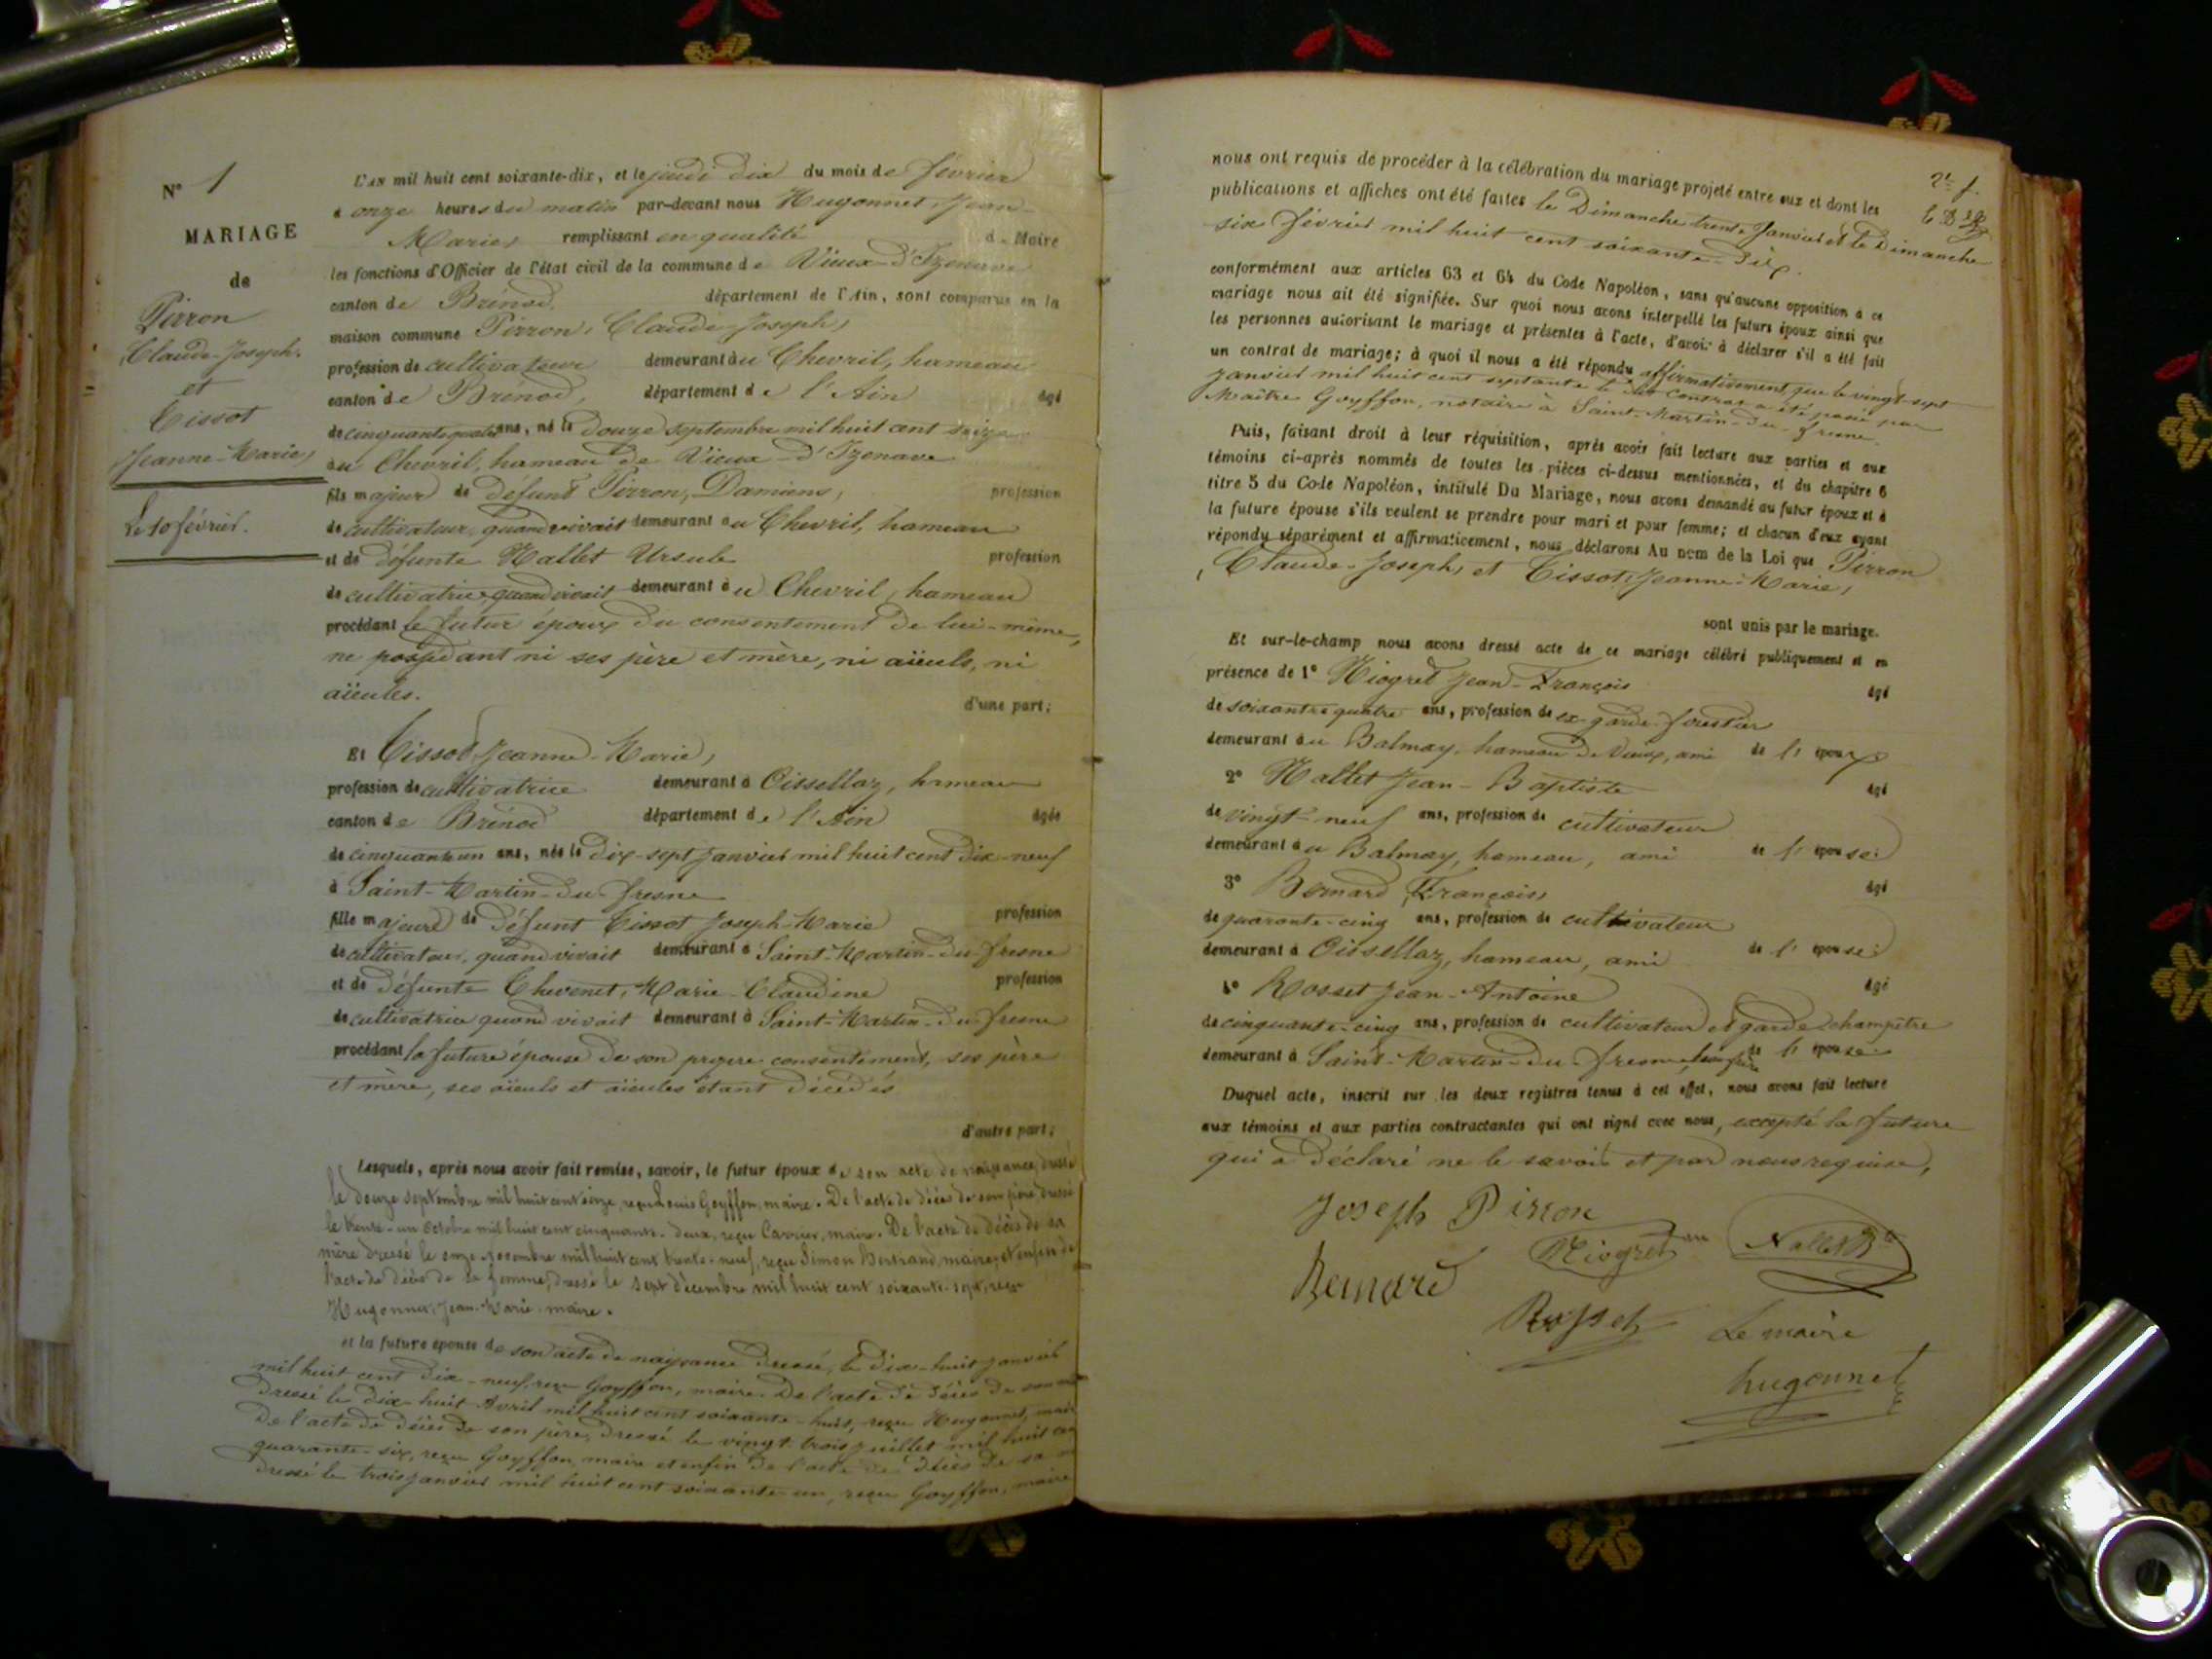 N° 1
MARIAGE
de
Pirron
Claude-Joseph.
et
Tissot
Jeanne-Marie,
Le 10 février.
L'AN mil huit cent soixante-dix, et le jeudi dix du mois de février
à onze heures du matin par-devant nous Hugonnet, Jean-
Marie, remplissant en qualité de Maire
les fonctions d'Officier de l'état civil de la commune de Vieux-d'Izenave
canton de Brénod, département de l'Ain, sont comparus en la
maison commune Pirron, Claude-Joseph,
profession de cultivateur demeurant au Chevril, hameau
canton de Brénod, département de l'Ain âgé
de cinquante quatre ans, né le douze septembre mil huit cent seize
au Chevril, hameau de Vieux-d'Izenave
fils majeur de défunt Pirron, Damiens, profession
de cultivateur, quand vivait demeurant au Chevril, hameau
et de défunte Nallet Ursule profession
de cultivatrice quand vivait demeurant au Chevril, hameau
procédant le futur époux du consentement de lui-même,
ne possédant ni ses père et mère, ni aïeuls, ni
aïeules. d'une part;
Et Tissot, Jeanne-Marie,
profession de cultivatrice demeurant à Oissellaz, hameau
canton de Brénod département de l'Ain âgée
de cinquante un ans, née le dix-sept janvier mil huit cent dix-neuf
à Saint-Martin-du-fresne
fille majeure de défunt Tissot Joseph-Marie profession
de cultivateur, quand vivait demeurant à Saint-Martin-du-fresne
et de défunte Chevenet, Marie-Claudine profession
de cultivatrice quand vivait demeurant à Saint-Martin-du-fresne
procédant la future épouse de son propre consentement, ses père
et mère, ses aïeuls et aïeules étant décédés
d'autre part;
Lesquels, après nous avoir fait remise, savoir, le futur époux de son acte de naissance, dressé
le douze septembre mil huit cent reçu Louis Goyffon, maire. De l'acte de décès de son père, dressé
le trente-un octobre mil huit cent cinquante-deux, reçu Carrier, maire. De l'acte de décès de sa
mère dressé le onze novembre mil huit cent trente-neuf, reçu Simon Bertrand, maire, et enfin de
l'acte de décès de sa femme, dressé le sept décembre mil huit cent soixante-sept, reçu
Hugonnet, Jean-Marie, maire.
et la future épouse de son acte de naissance dressé, le dix-huit janvier
mil huit cent dix-neuf, reçu Goyffon, maire. De l'acte de décès de son
dressé le dix-huit Avril mil huit cent soixante-huit, reçu Hugonnet, maire
De l'acte de décès de son père, dressé le vingt-trois juillet mil huit cent
quarante-six, reçu Goyffon, maire et enfin de l'acte de décès de sa
dressé le trois janvier mil huit cent soixante-un, reçu Goyffon, maire
2e f.
nous ont requis de procéder à la célébration du mariage projeté entre eux et dont les
publications et affiches ont été faites le Dimanche trente Janvier et le Dimanche
six février mil huit cent soixante-dix.
conformément aux articles 63 et 64 du Code Napoléon, sans qu'aucune opposition à ce
mariage nous ait été signifiée. Sur quoi nous avons interpellé les futurs époux ainsi que
les personnes autorisant le mariage et présentes à l'acte, d'avoir à déclarer s'il a été fait
un contrat de mariage; à quoi il nous a été répondu affirmativement, que le vingt-sept
janvier mil huit cent septante le dit contrat a été passé par
Maître Goyffon, notaire à Saint-Martin-du-fresne.
Puis, faisant droit à leur réquisition, après avoir fait lecture aux parties et aux
témoins ci-après nommés de toutes les pièces ci-dessus mentionnées, et du chapitre 6
titre 5 du Code Napoléon, intitulé Du Mariage, nous avons demandé au futur époux et à
la future épouse s'ils veulent se prendre pour mari et pour femme; et chacun d'eux ayant
répondu séparément et affirmativement, nous déclarons Au nom de la Loi que Pirron
Claude-Joseph, et Tissot, Jeanne-Marie,
sont unis par le mariage.
Et sur-le-champ nous avons dressé acte de ce mariage célébré publiquement et en
présence de 1° Niogret Jean-François âgé
de soixante quatre ans, profession de ex-garde-forestier
demeurant au Balmay, hameau de Vieux, ami de l'époux
2° Nallet Jean-Baptiste âgé
de vingt-neuf ans, profession de cultivateur
demeurant au Balmay, hameau, ami de l'épouse
3° Bernard, François, âgé
de quarante-cinq ans, profession de cultivateur
demeurant à Oissellaz, hameau, ami de l'épouse
4° Rosset Jean-Antoine âgé
de cinquante-cinq ans, profession de cultivateur et garde champêtre
demeurant à Saint-Martin-du-fresne, beau-frère de l'épouse
Duquel acte, inscrit sur les deux registres tenus à cet effet, nous avons fait lecture
aux témoins et aux parties contractantes qui ont signé avec nous, excepté la future
qui a déclaré ne le savoir et par nous requise,
Joseph Pirron
Niogret Nallet Bte
Bernard
Rosset Le maire
hugonnet